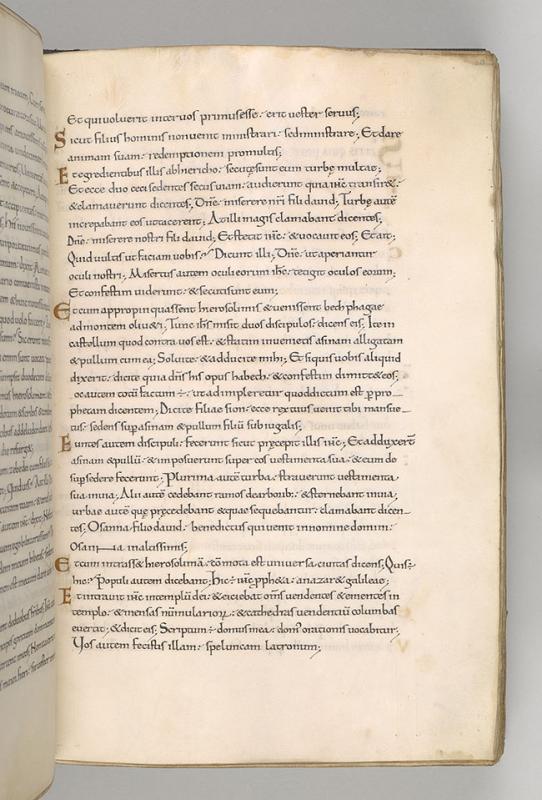 Et qui voluerit inter vos primus esse. erit vester servus;
Sicut filius hominis non venit ministrari. sed ministrare; Et dare
animam suam. redemptionem pro multis;
Et egredientibus illis ab hiericho. secutę sunt eum turbę multae;
Et ecce duo ceci sedentes secus viam. audierunt quia ihc transir&.
& clamaverunt dicentes; Dne miserere nri fili david; Turbę autē
increpabant eos ut tacerent; At illi magis clamabant dicentes;
Dne. miserere nostri fili david; Et stetit ihc. & vocavit eos; Et ait;
Quid vultis ut faciam vobis? Dicunt illi; Dne. ut aperiantur
oculi nostri; Misertus autem oculi eorum ihc. tetigit oculos eorum;
Et confestim viderunt. & secuti sunt eum;
Et cum appropinquassent hierosolimis & venissent bethphagae
ad montem oliv&i; Tunc ihs misit duos discipulos. dicens eis; Ite in
castellum quod contra vos est. & statim invenietis asinam alligatam
& pullum cum ea; Solvite. & adducite mihi; Et si quis vobis aliquid
dixerit. dicite quia dns his opus habet. & confestim dimitt& eos;
oc autem totū factum ÷. ut adimpleretur quod dictum est p pro
phetam dicentem; Dicite filiae sion. ecce rex tuus venit tibi mansue
tus. sedens sup asinam & pullum filiū subiugalis;
Euntes autem discipuli. fecerunt sicut pręcepit illis ihc; Et adduxert
asinam & pullū. & imposuerunt super eos vestimenta sua. & eum de
sup sedere fecerunt; Plurima autē turba. straverunt vestimenta
sua in via; Alii autē cedebant ramos de arborib;. & sternebant in via;
urbae autē quę pręcedebant & quae sequebantur. clamabant dicen
tes; Osanna filio david. benedictus qui venit in nomine domini.
Osanna in altissimis;
Et cum intrass& hierosolimā. cōmota est universa civitas dicens; Quis ÷
hic? Populi autem dicebant; Hic ÷ ihc ppheta. a nazar& galileae;
Et intravit ihc in templū dei. & eiciebat oms vendentes & ementes in
templo. & mensas nūmulariorum. & cathedras vendentiū columbas
evertit. & dicit eis; Scriptum ÷ domus mea. dom' orationis vocabitur;
Vos autem fecistis illam. speluncam latronum;